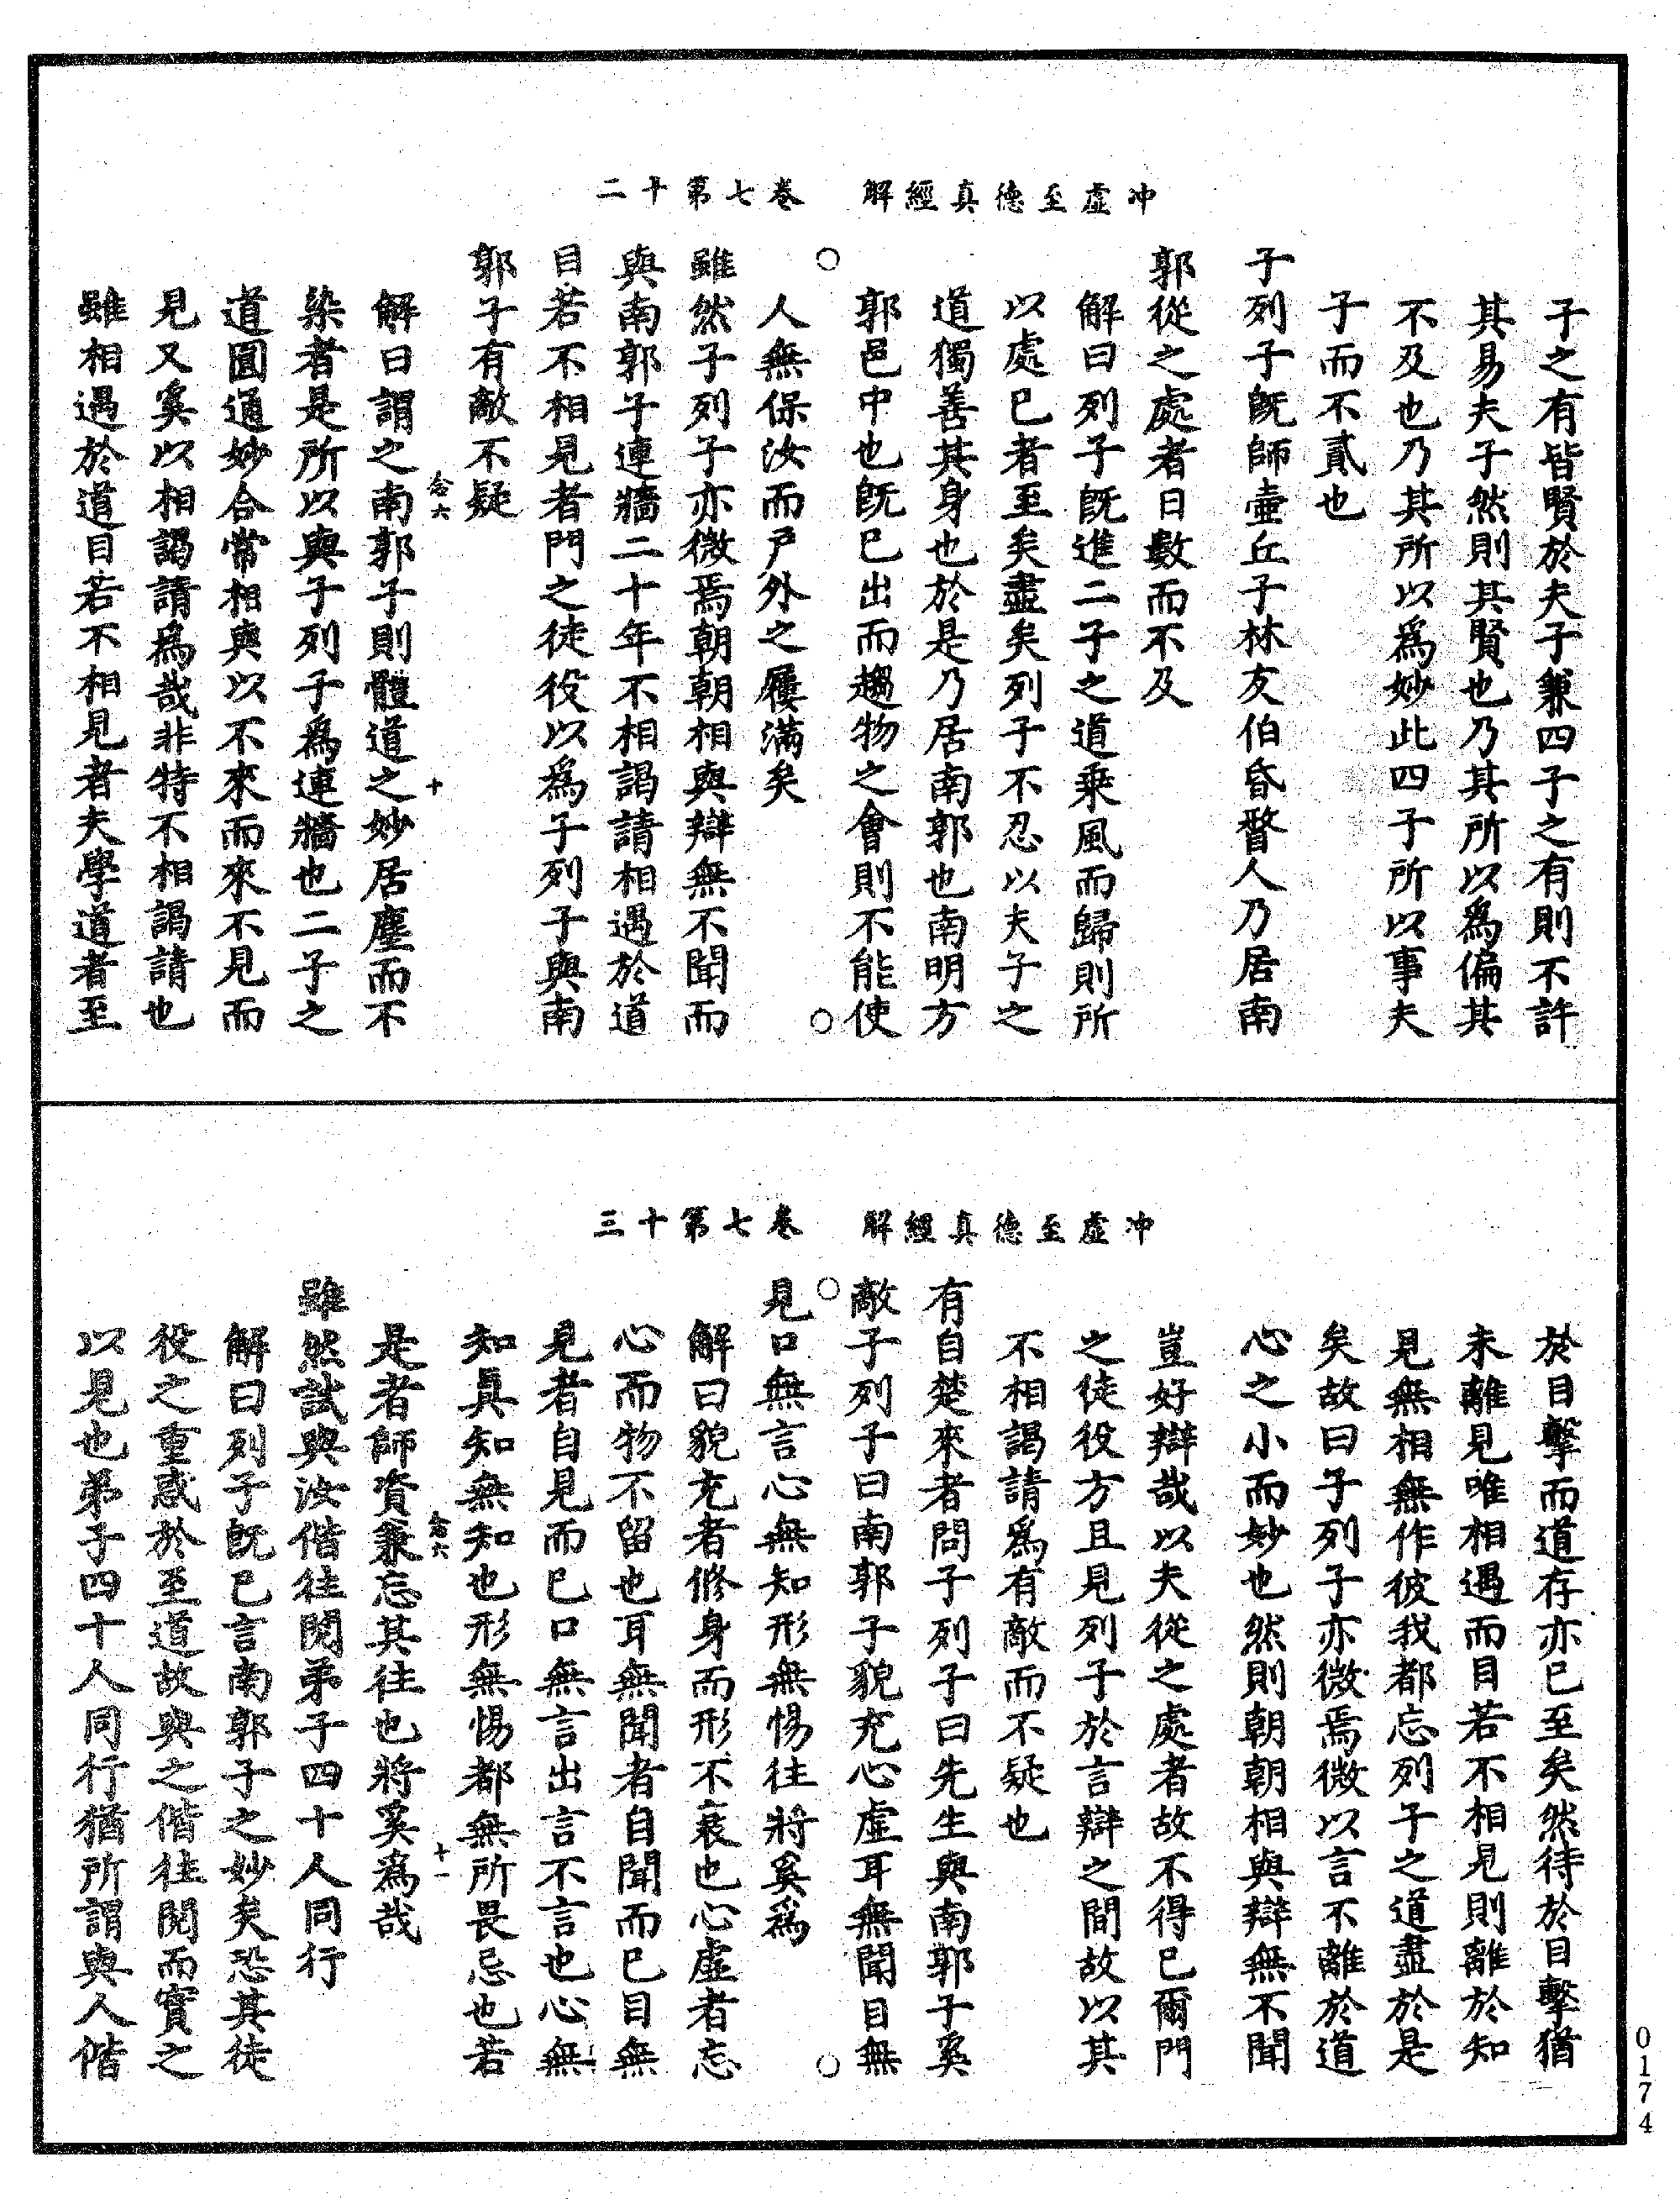 冲虛至德真經解　卷七第十二
子之有皆賢於夫子兼四子之有則不許
其易夫子然則其賢也乃其所以爲偏其
不及也乃其所以爲妙此四子所以事夫
子而不貳也
子列子旣師壺丘子林友伯昏瞀人乃居南
郭從之處者日數而不及
解曰列子旣進二子之道乘風而歸則所
以處已者至矣盡矣列子不忍以夫子之
道獨善其身也於是乃居南郭也南明方
郭邑中也旣已出而趨物之會則不能使
人無保汝而戶外之屨滿矣
雖然子列子亦微焉朝朝相與辯無不聞而
與南郭子連牆二十年不相謁請相遇於道
目若不相見者門之徒役以爲子列子與南
郭子有敵不疑
解曰謂之南郭子則體道之妙居塵而不
染者是所以與子列子爲連牆也二子之
道圓通妙合常相與以不來而來不見而
見又奚以相謁請爲哉非特不相謁請也
雖相遇於道目若不相見者夫學道者至
念六
十
冲虛至德真經解　卷七第十三
於目擊而道存亦已至矣然待於目擊猶
未離見唯相遇而目若不相見則離於知
見無相無作彼我都忘列子之道盡於是
矣故曰子列子亦微焉微以言不離於道
心之小而妙也然則朝朝相與辯無不聞
豈好辯哉以夫從之處者故不得已爾門
之徒役方且見列子於言辯之間故以其
不相謁請爲有敵而不疑也
有自楚來者問子列子曰先生與南郭子奚
敵子列子曰南郭子貌充心虛耳無聞目無
見口無言心無知形無惕往將奚爲
解曰貌充者修身而形不衰也心虛者忘
心而物不留也耳無聞者自聞而已目無
見者自見而已口無言出言不言也心無
知真知無知也形無惕都無所畏忌也若
是者師資兼忘其往也將奚爲哉
雖然試與汝偕往閱弟子四十人同行
解曰列子旣已言南郭子之妙矣恐其徒
役之重惑於至道故與之偕往閱而實之
以見也弟子四十人同行猶所謂與人偕
念六
十一
0174